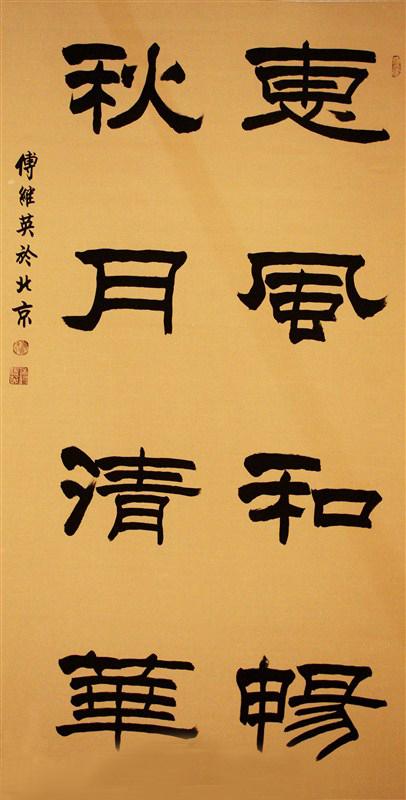 惠風和暢
秋月清華
傅維英於北京